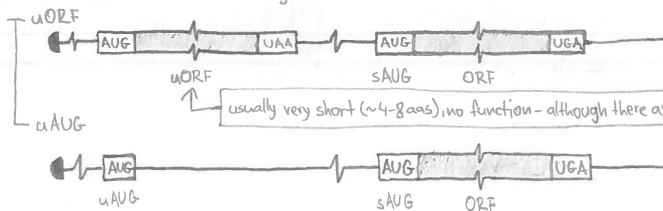 uORF
AUG UAA AUG UGA
uORF sAUG ORF
usually very short (~4-8aas), no function - although there a
uAUG
AUG AUG UGA
uAUG sAUG ORF